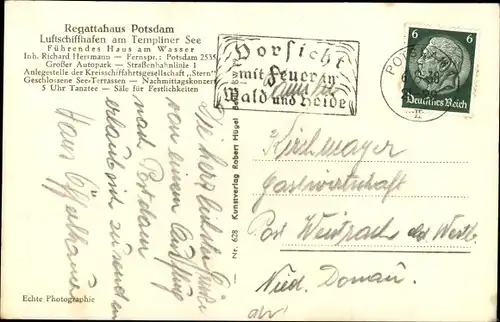 Regattahaus Potsdam
Luftschiffhafen am Templiner See
Führendes Haus am Wasser
Inh. Richard Herrmann — Fernspr.: Potsdam 2535
Großer Autopark — Straßenbahnlinie 1
Anlegestelle der Kreisschiffahrtsgesellschaft „Stern"
Geschlossene See-Terrassen — Nachmittagskonzert
5 Uhr Tanztee — Säle für Festlichkeiten
Vorsicht
mit Feuer in
Wald und Heide
6 6
Deutsches Reich
Die herzlichsten Grüße
von einem Ausflug
nach Potsdam
erlaubt sich zu senden
Hans
Nr. 628 Kunstverlag Robert Hügel
Kirchmayer
Gastwirtschaft
Post
Nied. Donau.
Echte Photographie